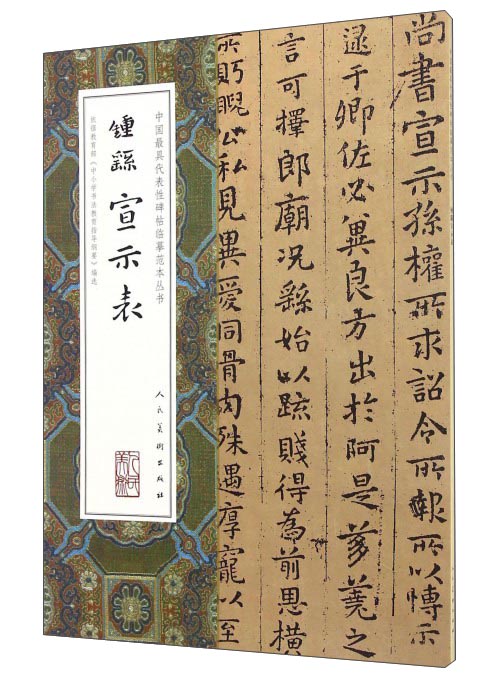 尚書宣示孫權所求詔令所報所以博示
逮于卿佐必冀良方出於阿是芻蕘之
言可擇郎廟況繇始以疏賤得為前恩橫
所眄睨公私見異愛同骨肉殊遇厚寵以至
中国最具代表性碑帖临摹范本丛书
鍾繇宣示表
依据教育部《中小学书法教育指导纲要》编选
人民美術出版社